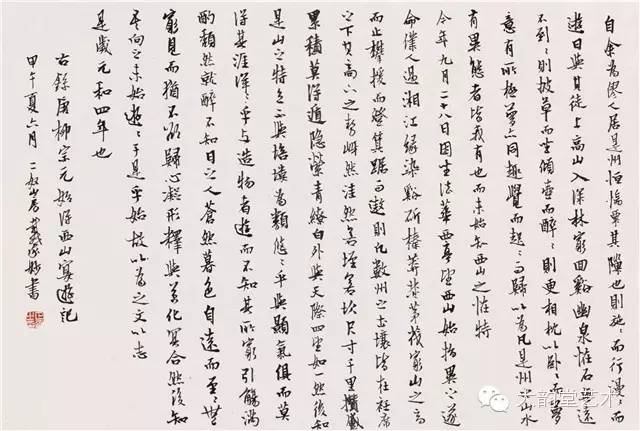 自余為僇人居是州恒惴栗其隙也則施〻而行漫〻而
遊日與其徒上高山入深林窮回谿幽泉怪石無遠
不到〻則披草而坐傾壺而醉〻則更相枕以卧〻而夢
意有所極夢亦同趣覺而起〻而歸以為凡是州之山水
有異態者皆我有也而未始知西山之怪特
今年九月二十八日因坐法華西亭望西山始指異之遂
命僕人過湘江緣染谿斫榛莽焚茅茷窮山之高
而止攀援而登箕踞而遨則凡數州之土壤皆在衽席
之下其高下之勢岈然洼然若垤若穴尺寸千里攢蹙
累積莫得遁隱縈青繚白外與天際四望如一然後知
是山之特立不與培塿為類悠〻乎與顥氣俱而莫
得其涯洋〻乎與造物者遊而不知其所窮引觴滿
酌頹然就醉不知日之入蒼然暮色自遠而至〻無
所見而猶不欲歸心凝形釋與萬化冥合然後知
吾向之未始遊〻於是乎始故以為之文以志
是歲元和四年也
右錄唐柳宗元始得西山宴遊記
甲午夏六月
大韵堂艺术